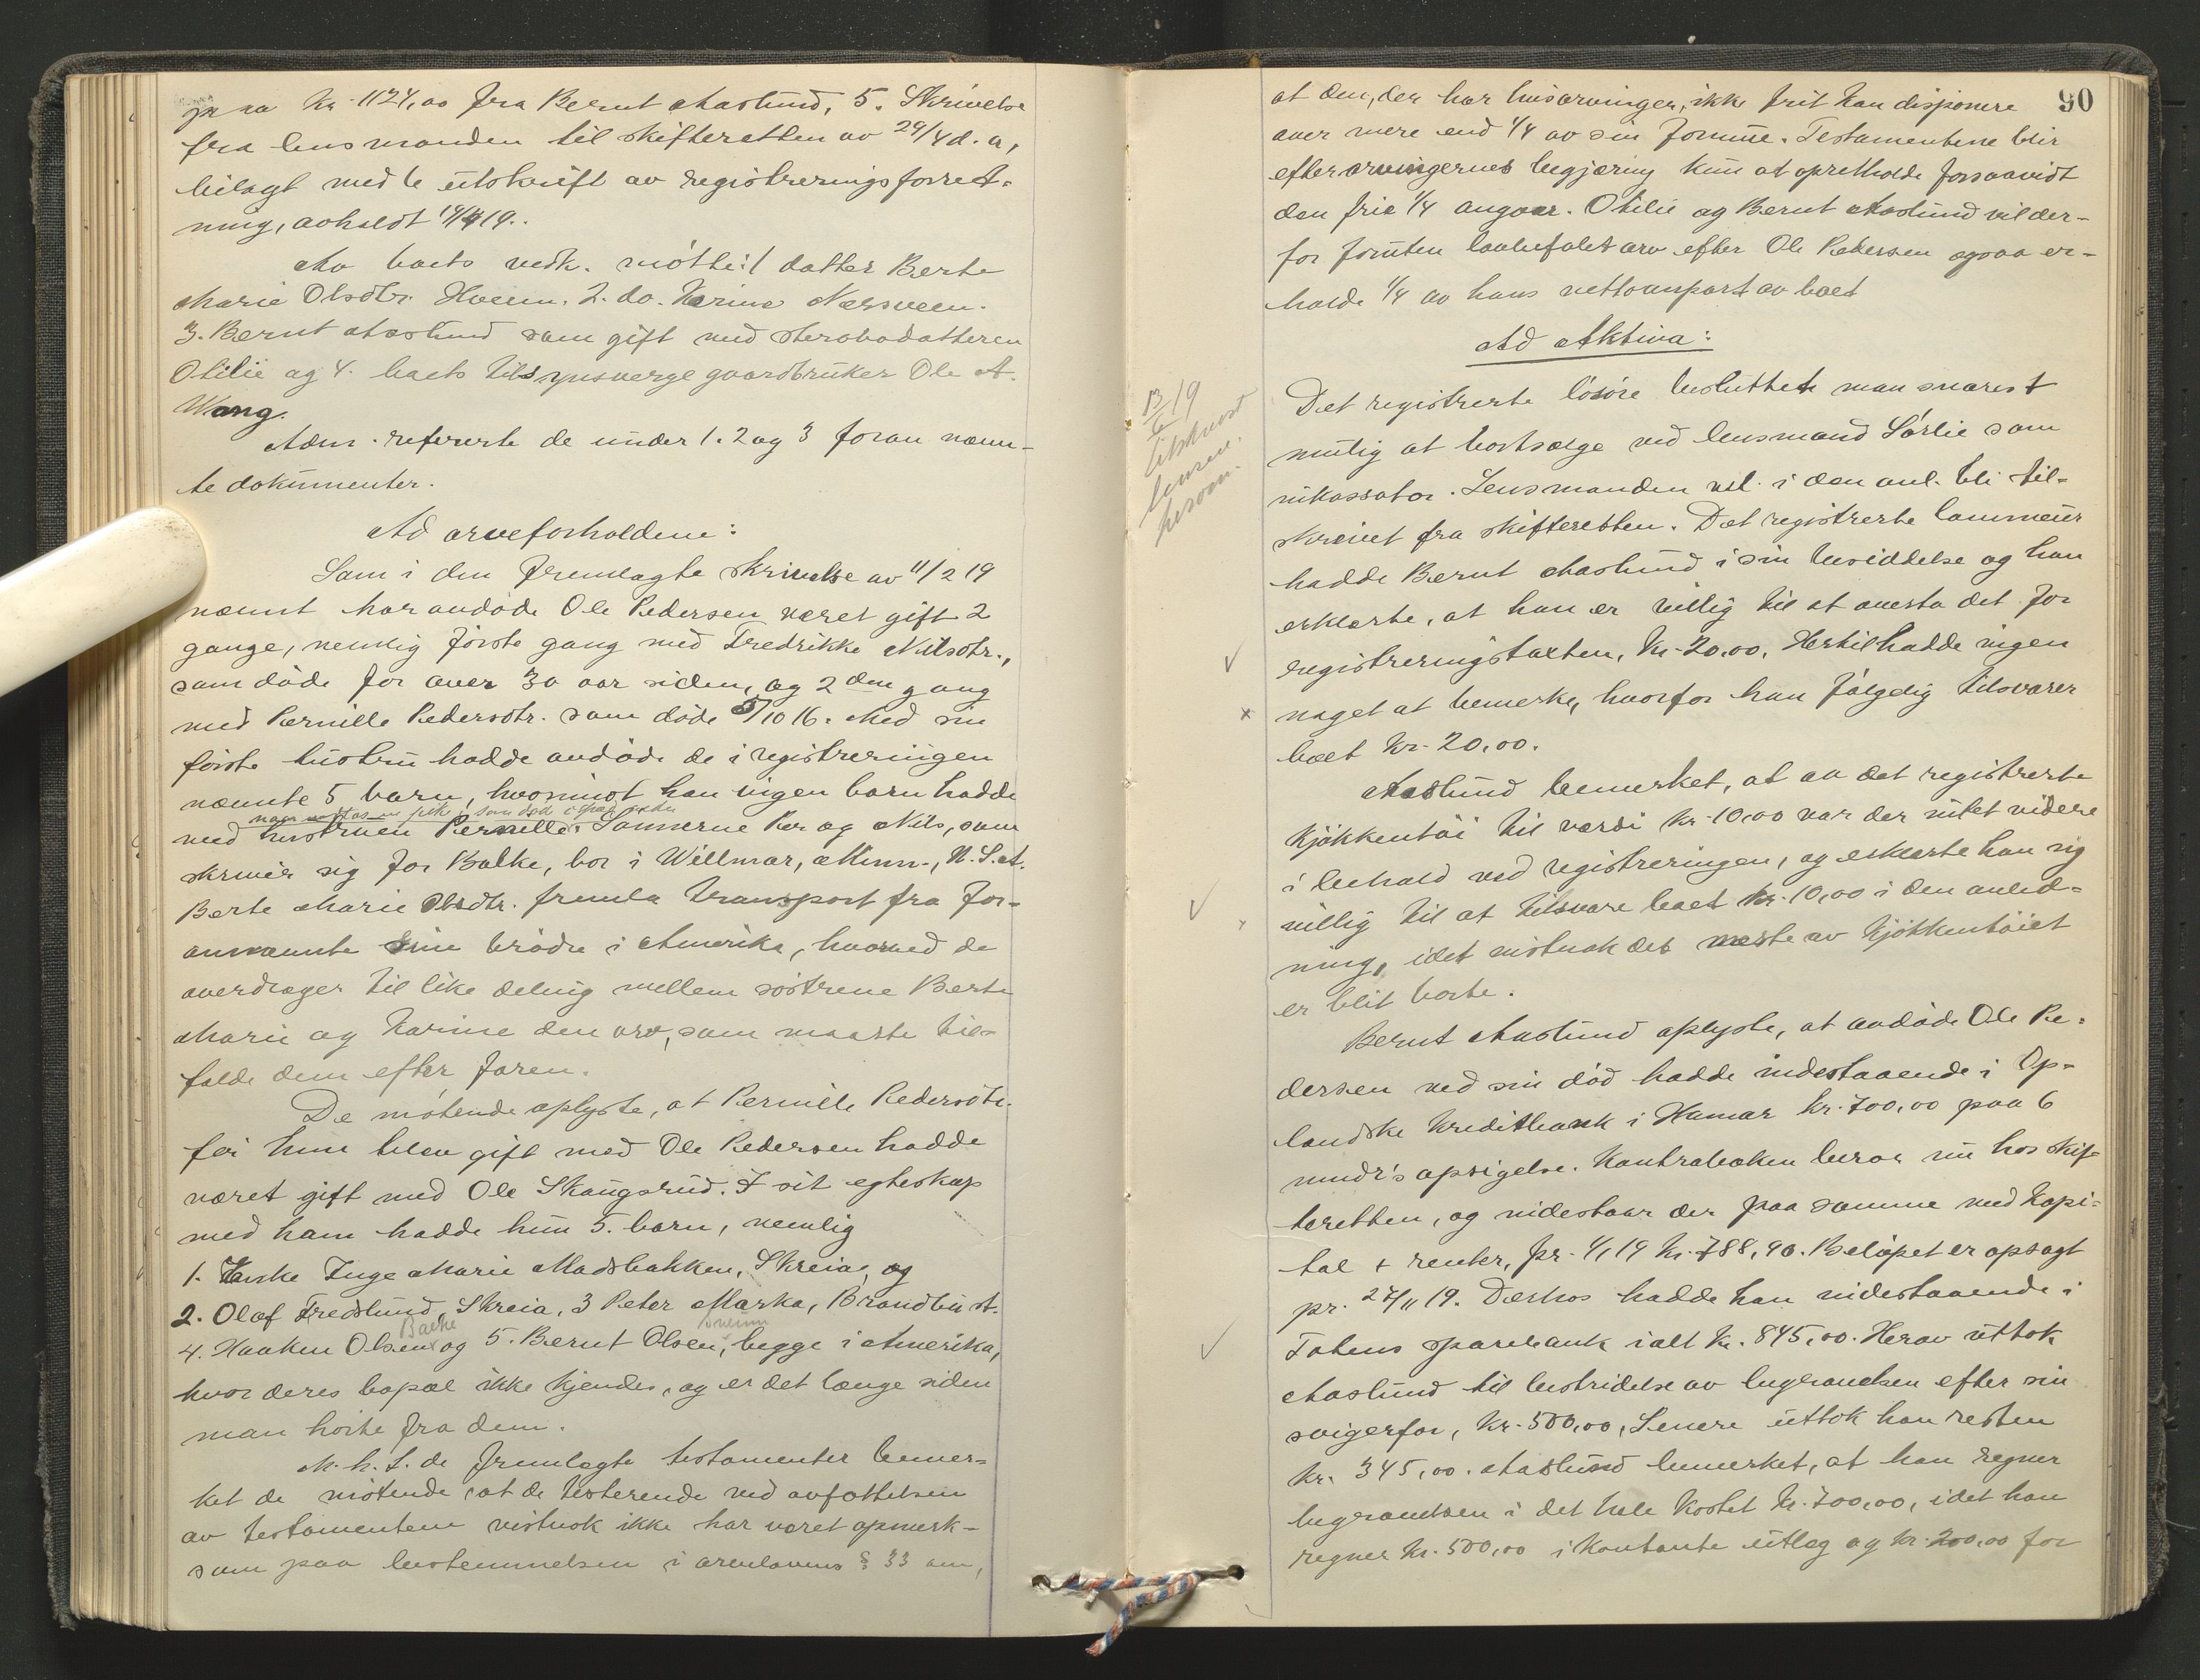 paa kr. 1124,00 fra Bernt Aaslund, 5. Skrivelse
fra lensmanden til skifteretten av 29/4 d. a,
bilagt med 6 utskrift av registreringsforret-
ning, avholdt 19.
Av boets vedk. møtte: 1 datter Berte
Marie Olsdtr. Hveem. 2. do. Karine Næsveen.
3. Bernt Aaslund som gift med sterbodatteren
Otilie og 4. boets tilsynsverge gaardbruker Ole A.
Wang.
Adm. refererte de under 1. 2 og 3 foran nævn-
te dokumenter.
Ad arveforholdene:
Som i den fremlagte skrivelse av 11/2 19
nævnt har avdøde Ole Pedersen været gift 2
gange, nemlig første gang med Fredrikke Nilsdtr.,
som døde for over 30 aar siden, og 2den gang
med Pernille Pedersdtr. som døde 5/10 16. Med sin
første hustru hadde avdøde de i registreringen
nævnte 5 barn, hvorimot han ingen barn hadde
med hustruen Pernille. Sønnerne Per og Nils, som
skriver sig for Balke, bor i Willmar, Minn., N. S. A.
Berte Marie Olsdtr. fremla transport fra for-
annævnte sine brødre i Amerika, hvorved de
overdrager til like deling mellem søstrene Berte
Marie og Karine den arv, som maatte til-
falde dem efter faren.
De møtende oplyste, at Pernille Pedersdtr.
før hun blev gift med Ole Pedersen hadde
været gift med Ole Skaugsrud. I sit egteskap
med ham hadde hun 5. barn, nemlig
1. Enke Inge Marie Madsbakken, Skreia, og
2. Olaf Fredslund, Skreia, 3 Peter Marka, Brandbu st.
4. Haaken Olsen Balke og 5. Bernt Olsen, begge i Amerika,
hvor deres bopæl ikke kjendes, og er det længe siden
man hørte fra dem.
M. h. t. de fremlagte testamenter bemer-
ket de møtende, at de testerende ved avfattelsen
av testamentene vistnok ikke har været opmerk-
som paa bestemmelsen i arvelovens § 33 om,
90
at den, der har livsarvinger, ikke frit kan disponere
over mere end 1/4 av sin formue. Testamentene blir
efter arvingernes begjæring kun at opretholde forsaavidt
den frie 1/4 angaar. Otilie og Bernt Aaslund vil der-
for foruten lovbefalet arv efter Ole Pedersen ogsaa er-
holde 1/4 av hans nettoanpart av boet
Ad Aktiva:
13/6 19
tilskrevet
lensm.
Det registrerte løsøre besluttet man snarest
mulig at bortsælge ved lensmand Sørlie som
inkassator. Lensmanden vil i den anl. bli til-
skrevet fra skifteretten. Det registrerte lommeur
hadde Bernt Aaslund i sin besiddelse og han
erklærte, at han er villig til at overta det for
registreringstaksten, kr. 20,00. Hertil hadde ingen
noget at bemerke, hvorfor han følgelig tilsvarer
boet kr. 20,00.
Aaslund bemerket, at av det registrerte
kjøkkentøi til værdi kr. 10,00 var der intet videre
i behold ved registreringen, og erklærte han sig
villig til at tilsvare boet kr. 10,00 i den anled-
ning, idet vistnok det meste av kjøkkentøiet
er blit borte.
Bernt Aaslund oplyste, at avdøde Ole Pe-
dersen ved sin død hadde indestaaende i Op-
landske Kreditbank i Hamar kr. 700,00 paa 6
mndr's opsigelse. Kontraboken beror nu hos skif-
teretten, og indestaar der paa samme med kapi-
tal + renter, pr. 1/1 19 kr. 788,90. Beløpet er opsagt
pr. 27/11 19. Derhos hadde han indestaaende i
Totens sparebank ialt kr. 845,00. Herav uttok
Aaslund til bestridelse av begravelsen efter sin
svigerfar, kr. 500,00, Senere uttok han resten
kr. 345,00. Aaslund bemerket, at han regner
begravelsen i det hele kostet kr. 700,00, idet han
regner kr. 500,00 i kontante utlæg og kr. 200,00 for